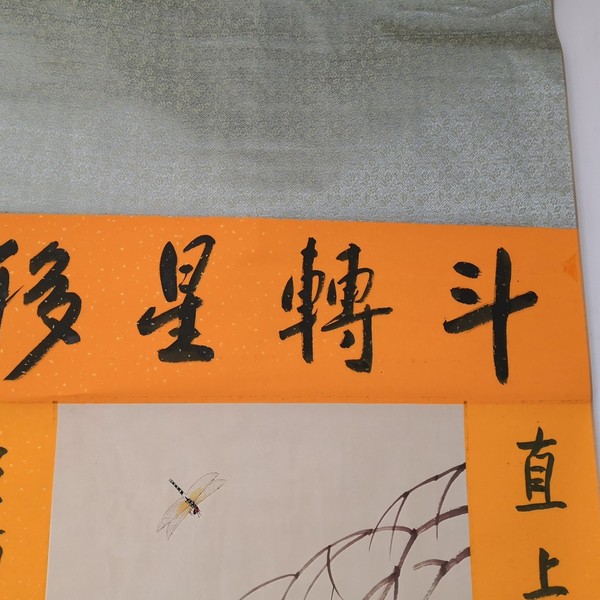 斗轉星移
直上